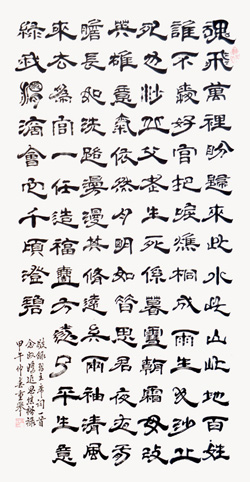 魂飛萬裡盼歸來此水此山此地百姓
誰不愛好官把淚焦桐成雨生也沙丘
死也沙丘父老生死係暮雪朝霜毋改
英雄意氣依然月明如昔思君夜夜肝
膽長如洗路漫漫其修遠矣兩袖清風
來去為官一任造福一方遂了平生意
綠我涓滴會它千頃澄碧
敬錄習主席詞一首
念奴嬌追思焦裕祿
甲午仲春